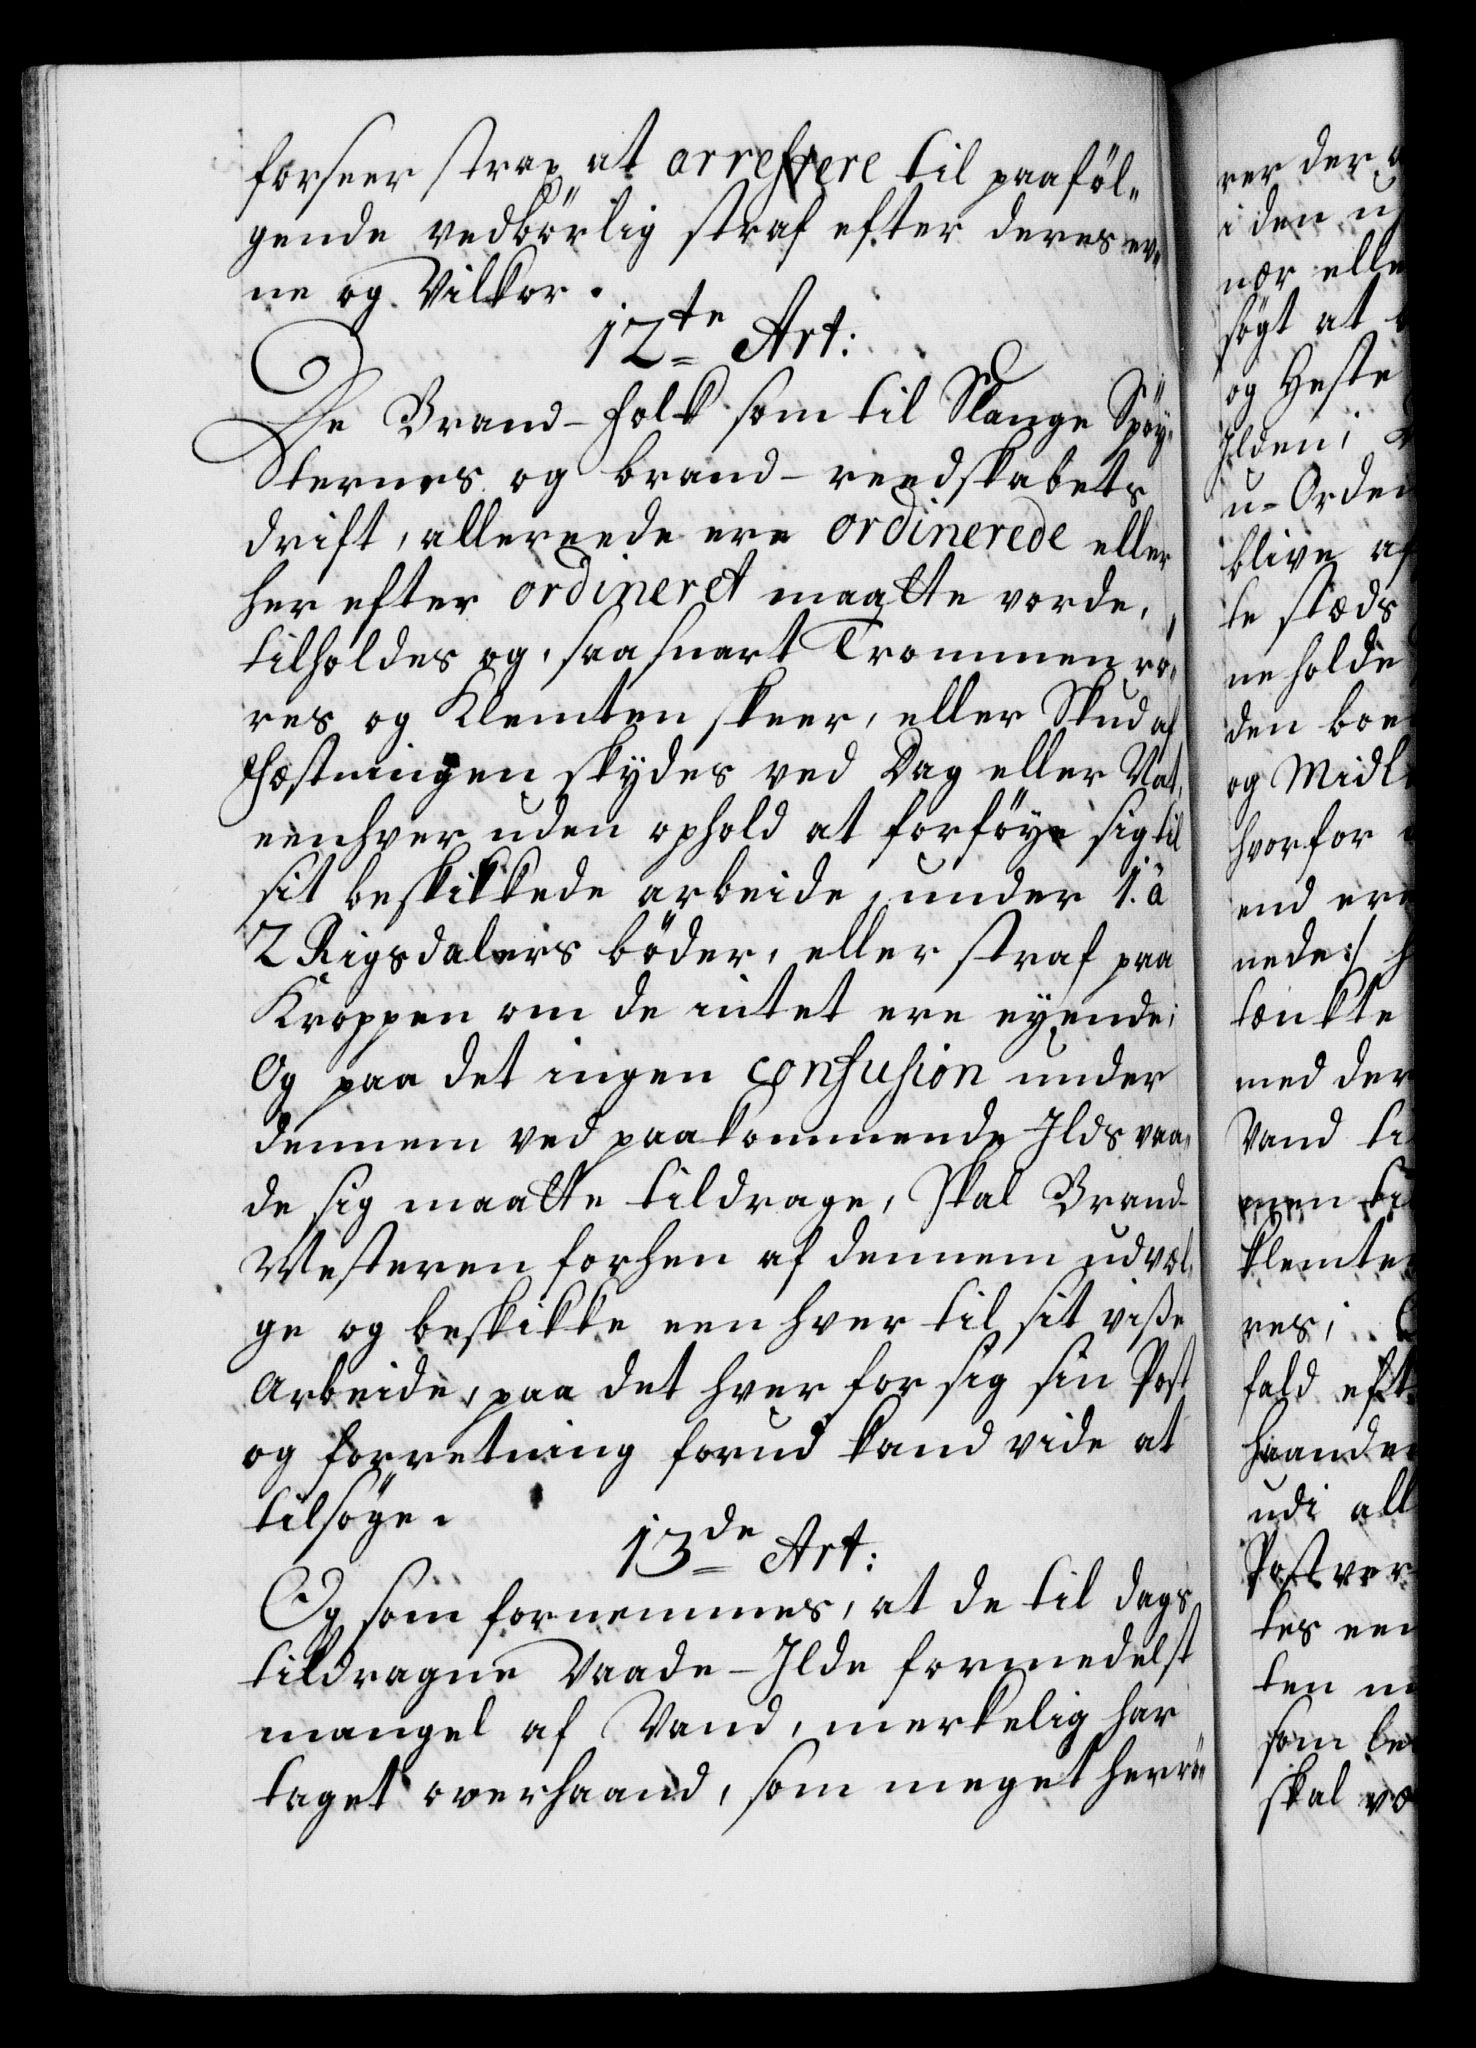 forseer strax at arrestere til paaföl„
gende vedbörlig straf efter deres ev„
ne og Vilkor.
12te Art:
De Brand-folk som til Slange Spöy„
ternes og brand-reedskabets
drift, allereede ere ordinerede eller
her efter ordineret maatte vorde,
tilholdes og, saa snart Trommen rö„
res og Klemten skeer, eller Skud af
Fæstningen skydes ved Dag eller Nat,
eenhver uden ophold at forföye sig til
sit beskikkede arbeide, under 1. à
2 Rigsdalers böder, eller straf paa
Kroppen om de intet ere eyende;
Og paa det ingen confusion under
dennem ved paakommende Ilds vaa„
de sig maatte tildrage, skal Brand-
Mesteren forhen af dennem udvæl„
ge og beskikke een hver til sit visse
Arbeide, paa det hver for sig sin Post
og forretning forud kand vide at
tilsöge.
13de Art:
Og som fornemmes, at de til dags
tildragne Vaade-Ilde formedelst
mangel af Vand, merkelig har
taget overhaand, som meget herrö„
rer der
i den
nær elle
sögt at
og Heste
Ilden;
u-Orden
blive af
te stæds
ne holde
den boe
og Midl
hvorfor
end ere
nede:/
tænkte
med der
Vand ti
men ti
klemte
res;
fald eft
haande
udi all
Post ver
tes een
ten
som be
skal væ